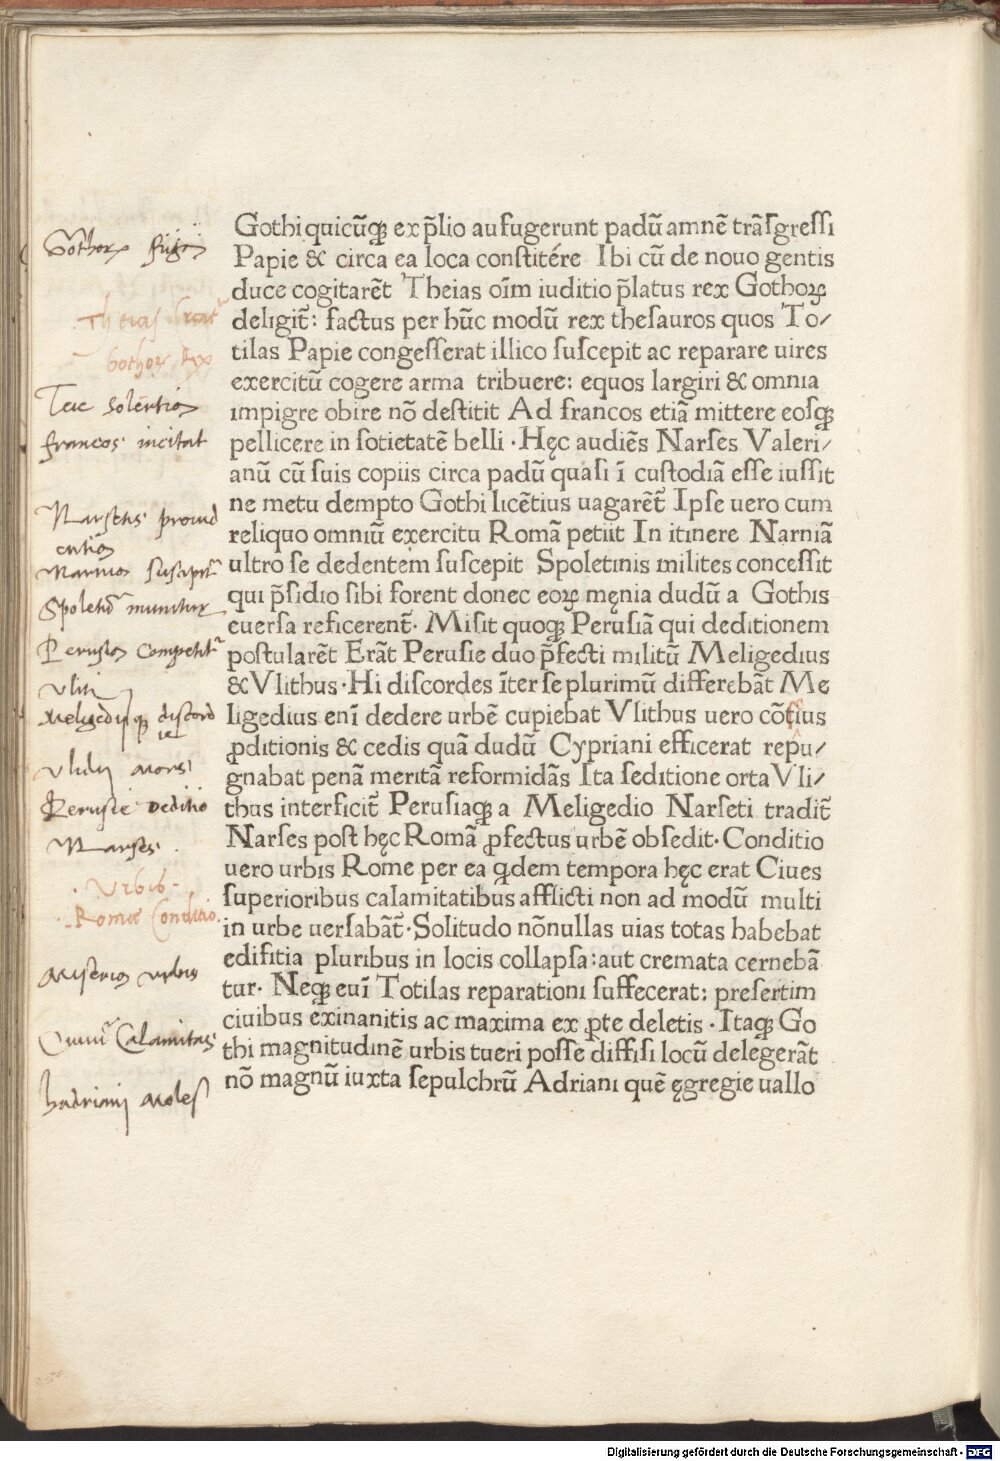 Gothi quicũqꝫ ex p̃lio aufugerunt padũ amnẽ trãſgreſſi
Papie & circa ea loca conſtitére Ibi cũ de nouo gentis
duce cogitarẽt Theias oĩm iuditio p̃latus rex Gothoꝝ
deligit̃: factus per hũc modũ rex theſauros quos To/
tilas Papie congeſſerat illico ſuſcepit ac reparare uires
exercitũ cogere arma tribuere: equos largiri & omnia
impigre obire nõ deſtitit Ad francos etiã mittere eoſqꝫ
pellicere in ſotietatẽ belli · Hęc audiẽs Narſes Valeri/
anũ cũ ſuis copiis circa padũ quaſi ĩ cuſtodiã eſſe iuſſit
ne metu dempto Gothi licẽtius uagarẽt̃ Ipſe uero cum
reliquo omniũ exercitu Romã petiit In itinere Narniã
ultro ſe dedentem ſuſcepit Spoletinis milites conceſſit
qui p̃ſidio ſibi forent donec eoꝝ męnia dudũ a Gothis
euerſa reficerent̃· Miſit quoqꝫ Peruſiã qui deditionem
poſtularẽt Erãt Peruſie duo p̃fecti militũ Meligedius
& Vlithus · Hi diſcordes ĩter ſe plurimũ differebãt Me
ligedius enĩ dedere urbẽ cupiebat Vlithus uero cõtius
ꝓditionis & cedis quã dudũ Cypriani efficerat repu/
gnabat penã meritã reformidãs Ita ſeditione orta Vli/
thus interficit̃ Peruſiaqꝫ a Meligedio Narſeti tradit̃
Narſes poſt hęc Romã ꝓfectus urbẽ obſedit· Conditio
uero urbis Rome per ea q̃dem tempora hęc erat Ciues
ſuperioribus calamitatibus afflicti non ad modũ multi
in urbe uerſabãt̃·Solitudo nõnullas uias totas habebat
edifitia pluribus in locis collapſa: aut cremata cernebã
tur· Neqꝫ euĩ Totilas reparationi ſuffecerat: preſertim
ciuibus exinanitis ac maxima ex ꝑte deletis · Itaqꝫ Go
thi magnitudinẽ urbis tueri poſſe diffiſi locũ delegerãt
nõ magnũ iuxta ſepulchrũ Adriani quẽ ęgregie uallo
Gothoꝝ fuga
Theias
Gothoꝝ Rex
Teie Solertia
francos incitat
Narsetis prouid
entia
Narnia suscipit̃
Spoletũ munitur
Vliti
Meligediqꝫ discord
ie
Vlithi mors
Perusie deditio
Narses
Vrbis
Rome Conditio
miseria urbis
Ciuiũ Calamitas
hadriani moles
Digitalisierung gefördert durch die Deutsche Forschungsgemeinschaft - DFG